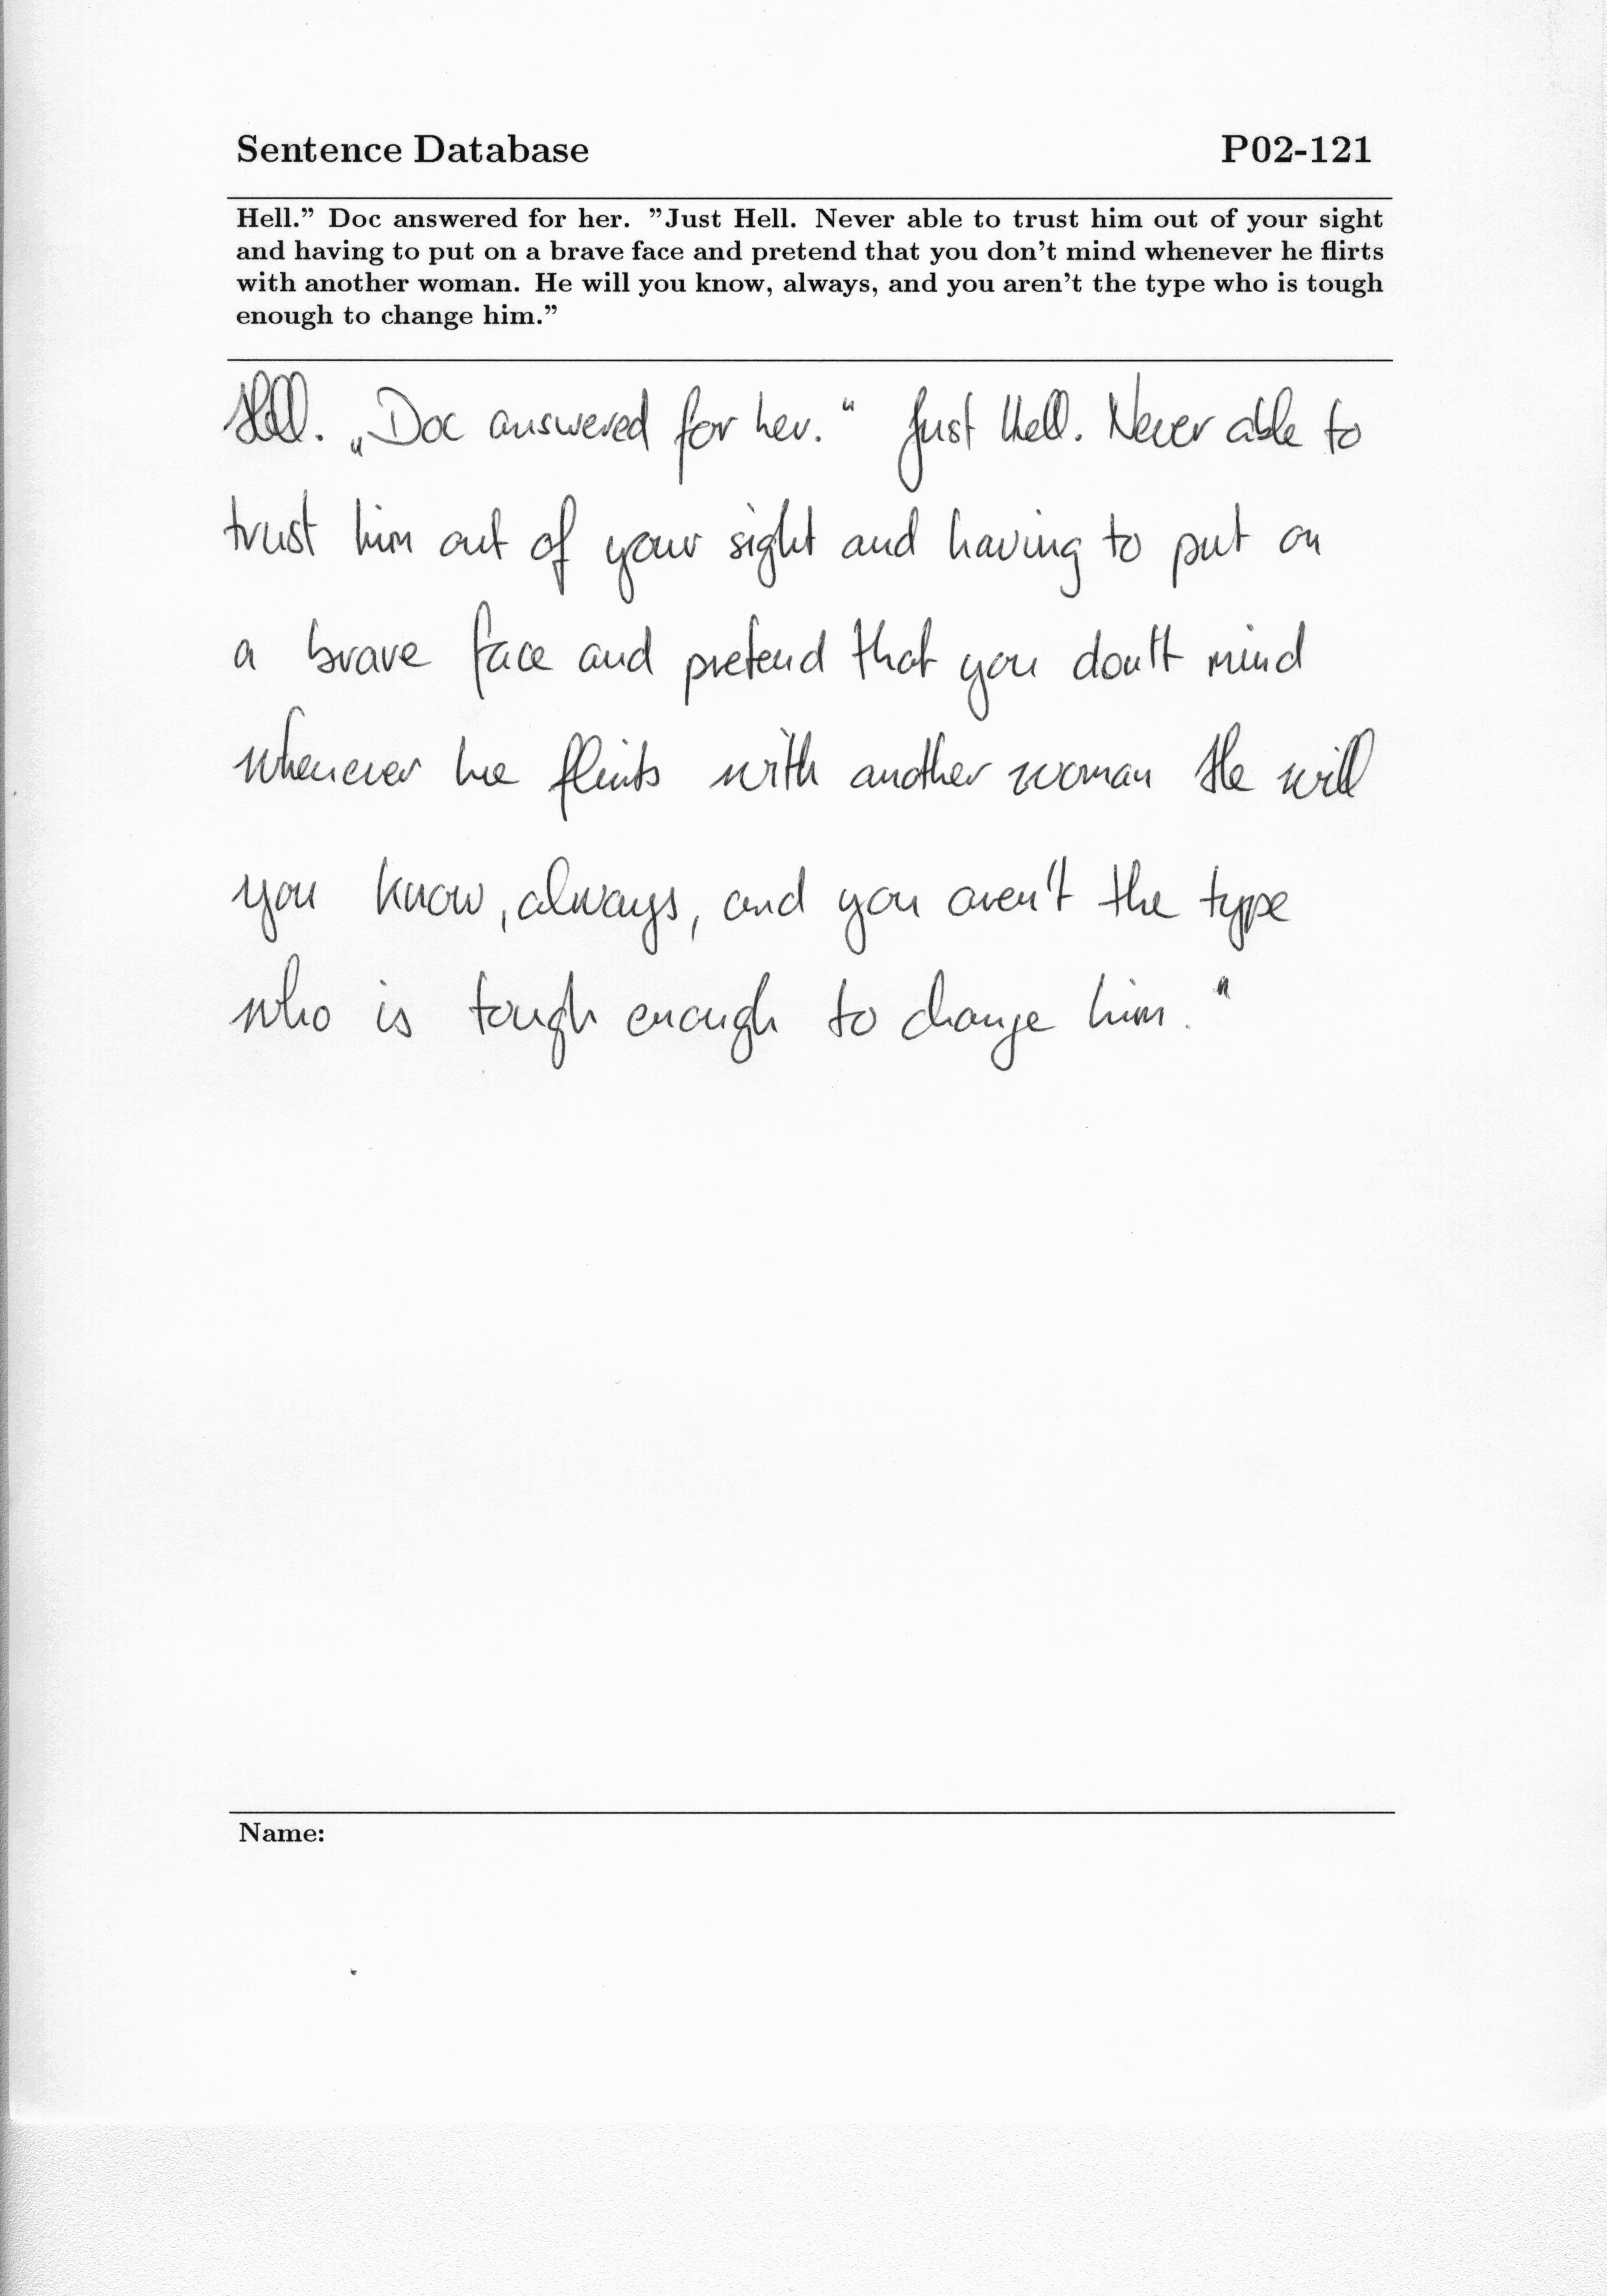 Sentence Database P02-121
Hell." Doc answered for her. "Just Hell. Never able to trust him out of your sight
and having to put on a brave face and pretend that you don't mind whenever he flirts
with another woman. He will you know, always, and you aren't the type who is tough
enough to change him."
Hell. „Doc answered for her.“ Just Hell. Never able to
trust him out of your sight and having to put on
a brave face and pretend that you don't mind
whenever he flirts with another woman He will
you know, always, and you aren't the type
who is tough enough to change him."
Name: